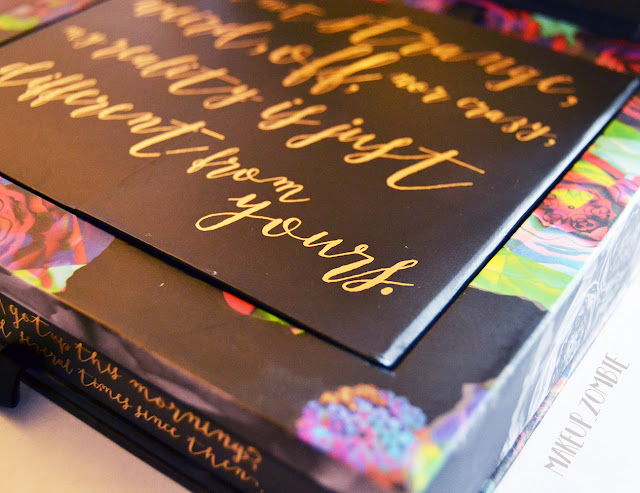 not strange,
weird, off, nor crazy,
my reality is just
different from
yours.
got up this morning,
several times since then.
MAKEUP ZOMBIE